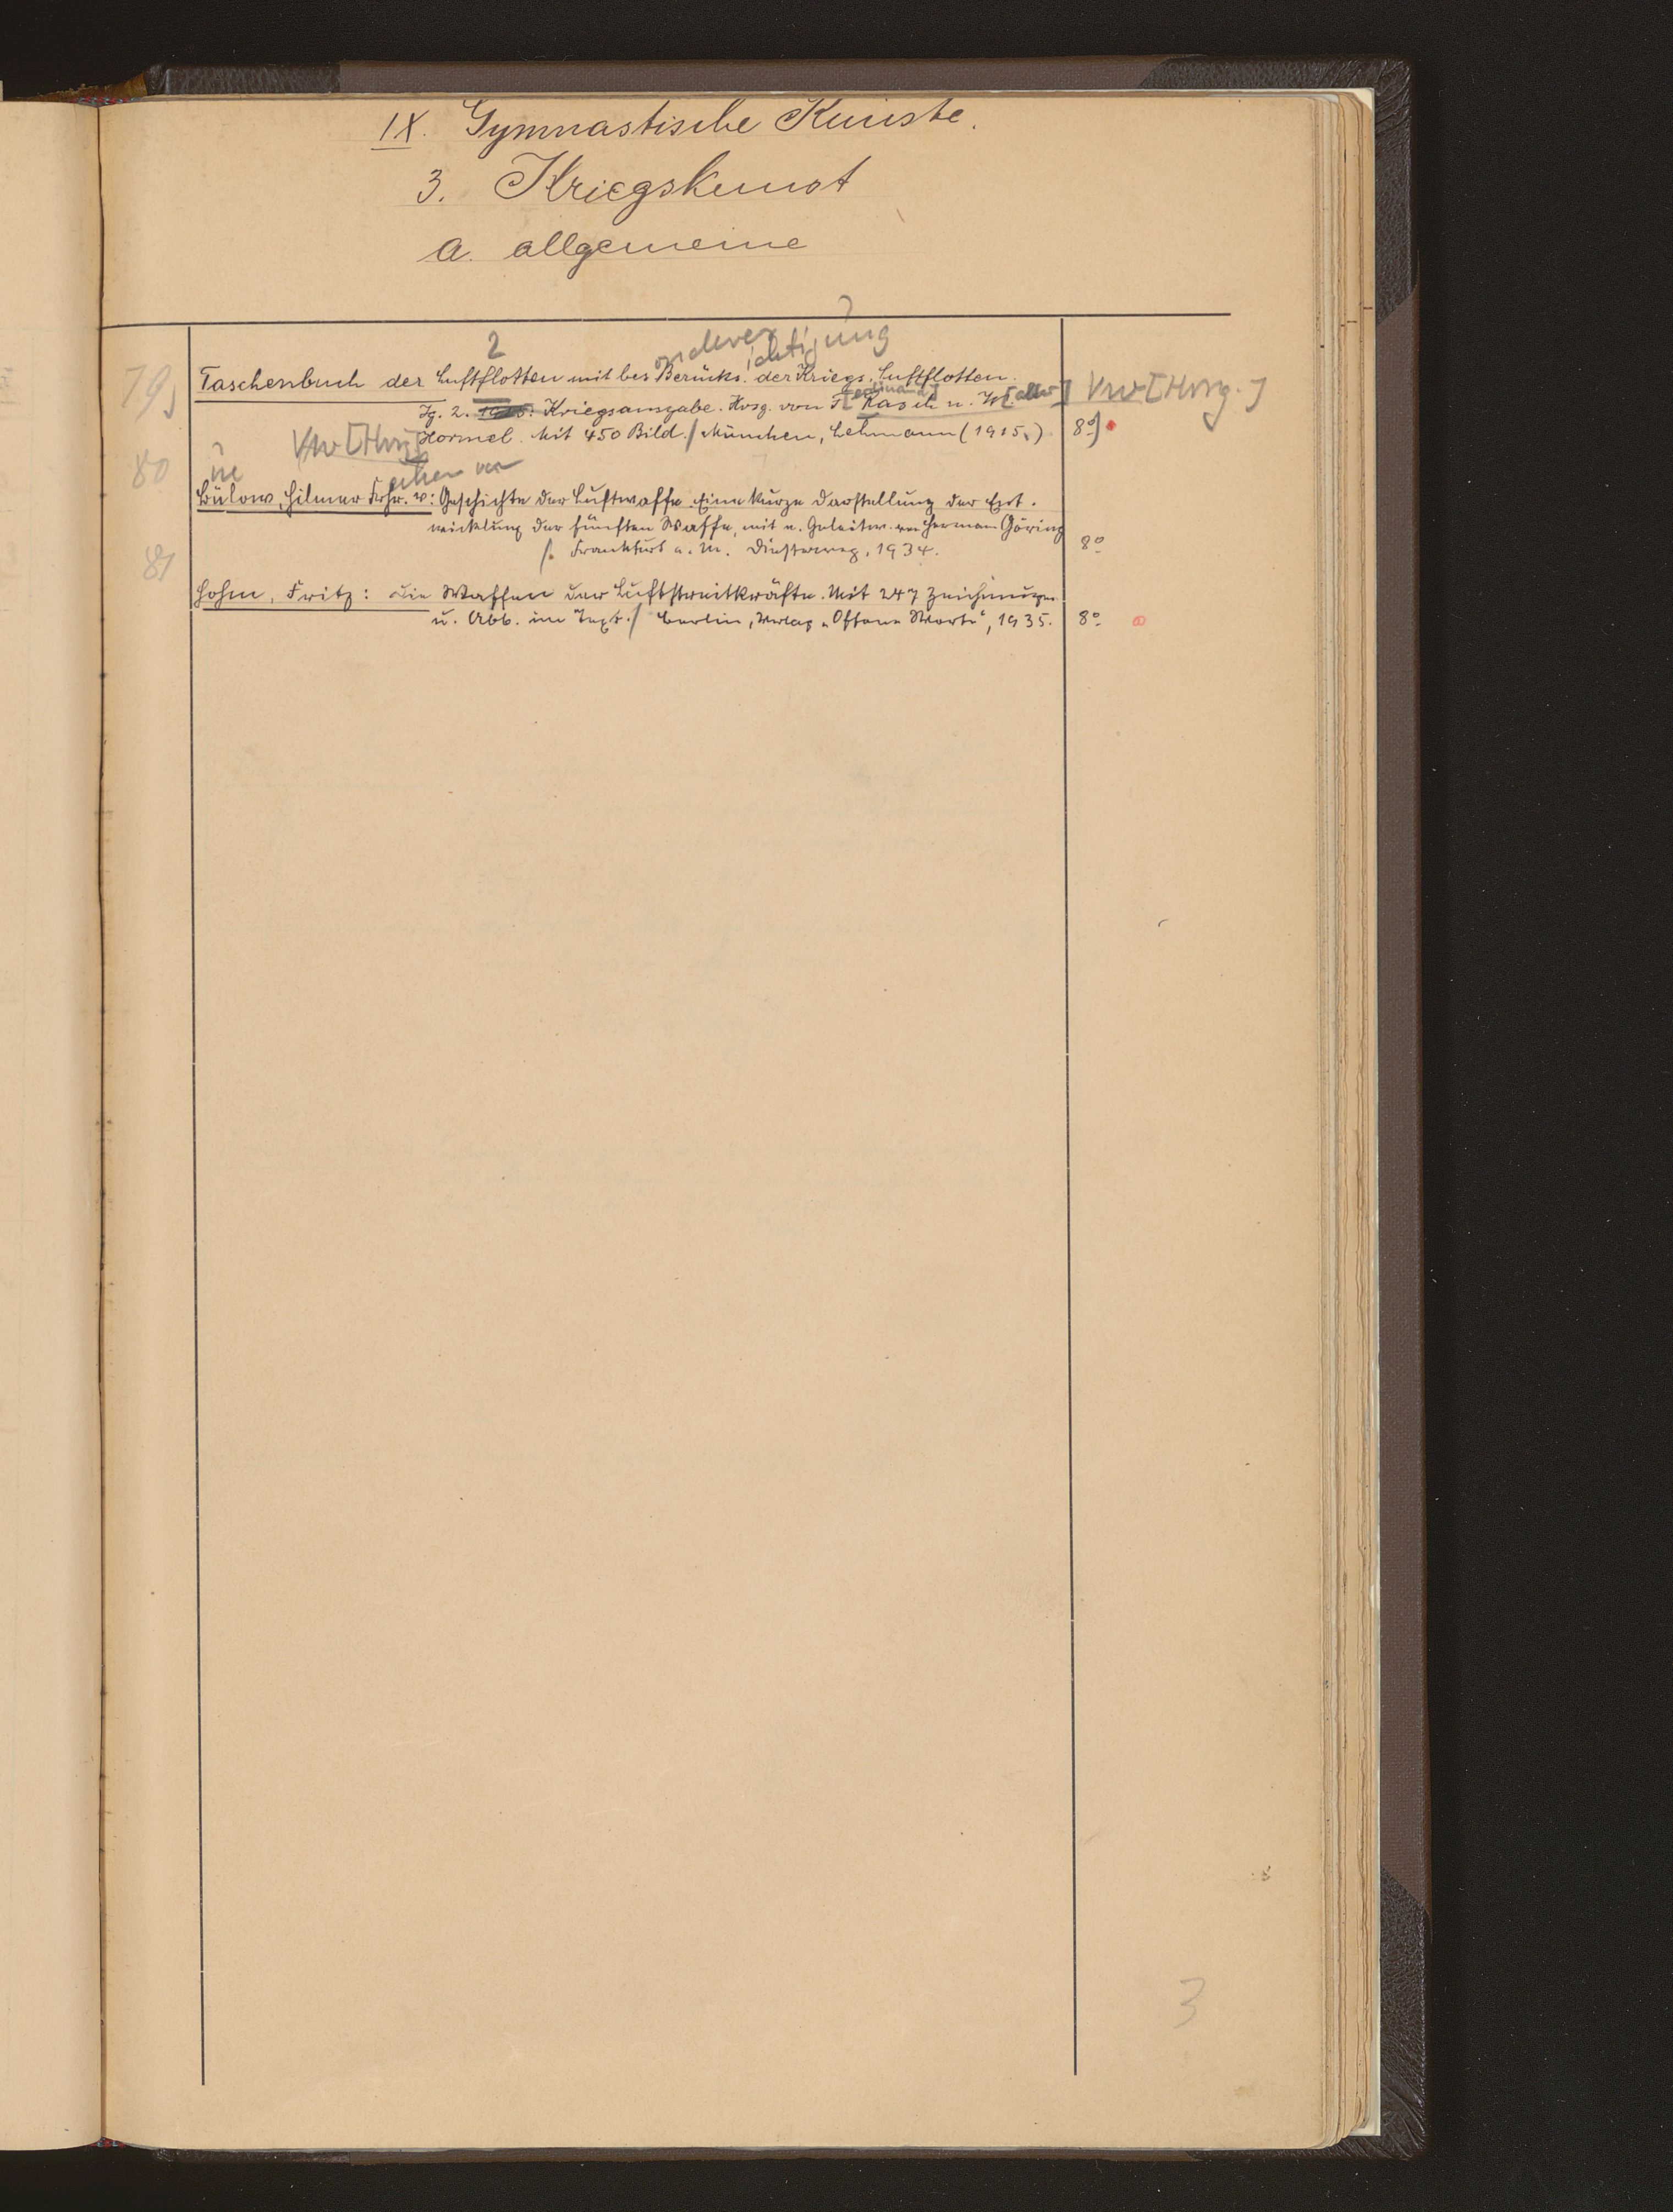 IX. Gymnastische Künste.
3. Kriegskunst
a. allgemeine
2 onderer ichtigung
79 Taschenbuch der Luftflotten mit bes Berücks. der Kriegs-Luftflotten.
[erdinand]
Jg. 2. 1915: Kriegsausgabe. Hrsg. von F. Rasch u. W. Vw [Hrsg.]
Vw [Hrsg] Hormel. Mit 450 Bild. / München, Lehmann (1915.) 8°
80 eiherr von
Bülow, Hilmer Frhr. v: Geschichte der Luftwaffe. Eine kurze Darstellung der Ent-
wicklung der fünften Waffe, mit e. Geleitw. von Herman Göring
/. Frankfurt a. M. Diesterweg, 1934. 8°
81
Hohm, Fritz: Die Waffen der Luftstreitkräfte. Mit 247 Zeichnungen
u. Abb. im Text. / Berlin, Verlag „Offene Worte“, 1935. 8°
3